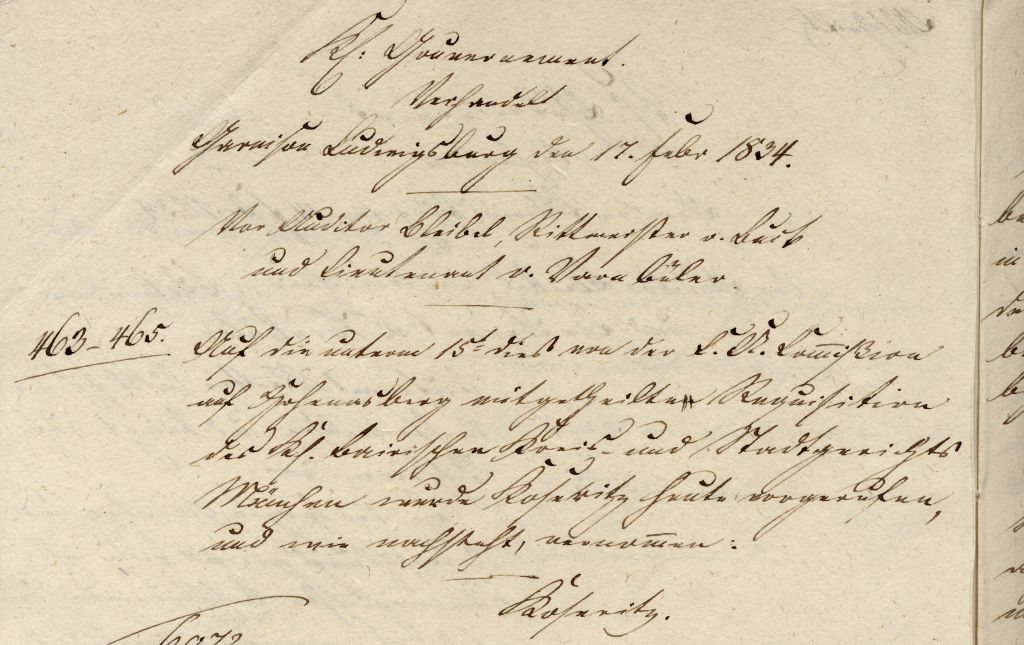 Kh: Gouvernement.
Verhandelt
Garnison Ludwigsburg den 17. Febr 1834.
Vor Auditor Bleibel, Rittmeister v. Buch
und Lieutenant v. Varnbüler.
463-465.
Auf die unterm 15t dies von der C. U. Commißion
auf Hohenasberg mitgetheilte Requisition
des Kh. bairischen Kreis- und Stadtgerichts
München wurde Koseritz heute vorgerufen,
und wie nachsteht, vernommen:
Koseritz.